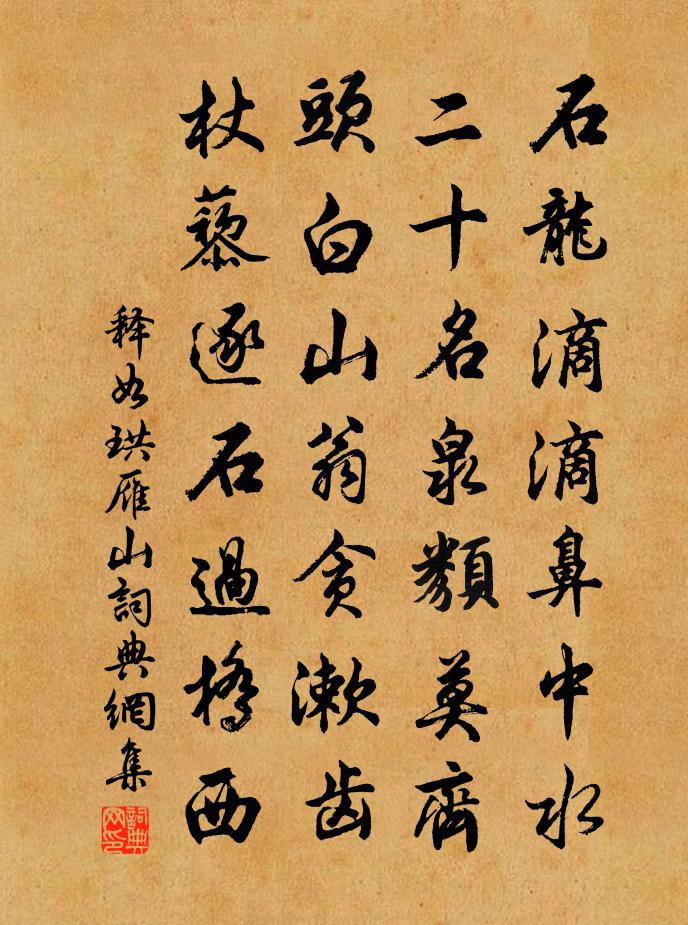 石龍滴滴鼻中水
二十名泉類莫齊
頭白山翁貪漱齿
杖藜逐石過橋西
释如珙雁山詞典網集
詞典网印